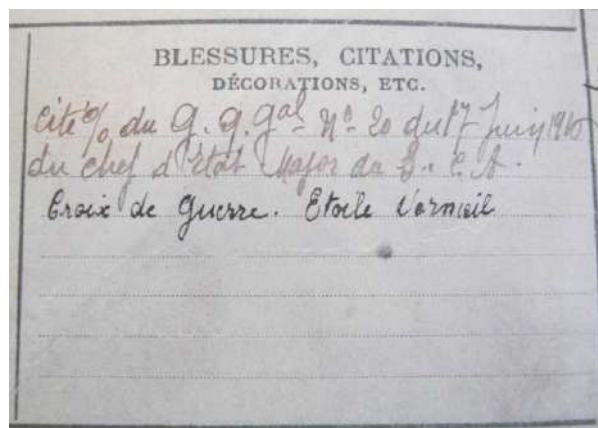 BLESSURES, CITATIONS,
DÉCORATIONS, ETC.
Cité % du G. Q. Gal Nº 20 du 17 Juin
du chef d'état Major du C. A.
Croix de Guerre. Etoile Vermeil